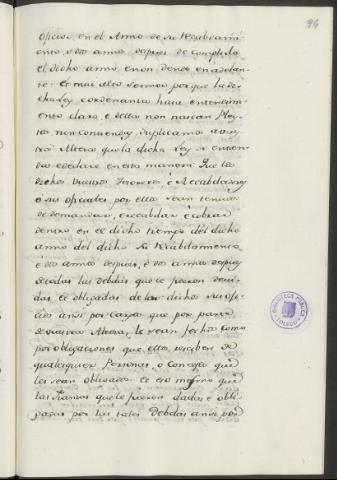 94
oficio, en el Anno de su Recabdami
ento, e dos annos despues de complido
el dicho anno, e non dende en adelan
te. E mui alto Sennor por que la di
cha ley e ordenanza haia entendim
ento claro, e della non nascan Pley
tos nin contiendas, suplicamos a vues
tra Alteza que la dicha Ley se entien
da e declare en esta manera. Que los
dichos vuestros Thesoreros, e Recabdadores
o sus oficiales por ellos sean tenudos
de demandar, e recabdar e cobrar
dentro en el dicho tiempo del dicho
anno del dicho su Recabdamiento
e dos annos despues, e dos annos despues
todas las debdas que le fueren devi
das, e obligados de los dichos sus ofi
cios asi por cartas que por parte
de vuestra Alteza, le sean fechas como
por obligaciones que ellos reciben de
qualesquier Personas, o Concejos que
les sean obligados. E eso mesmo que
las fianzas que le fueren dadas e obli
gadas por las tales debdas asi por
BIBLIOTECA PUBLICA
TOLEDO